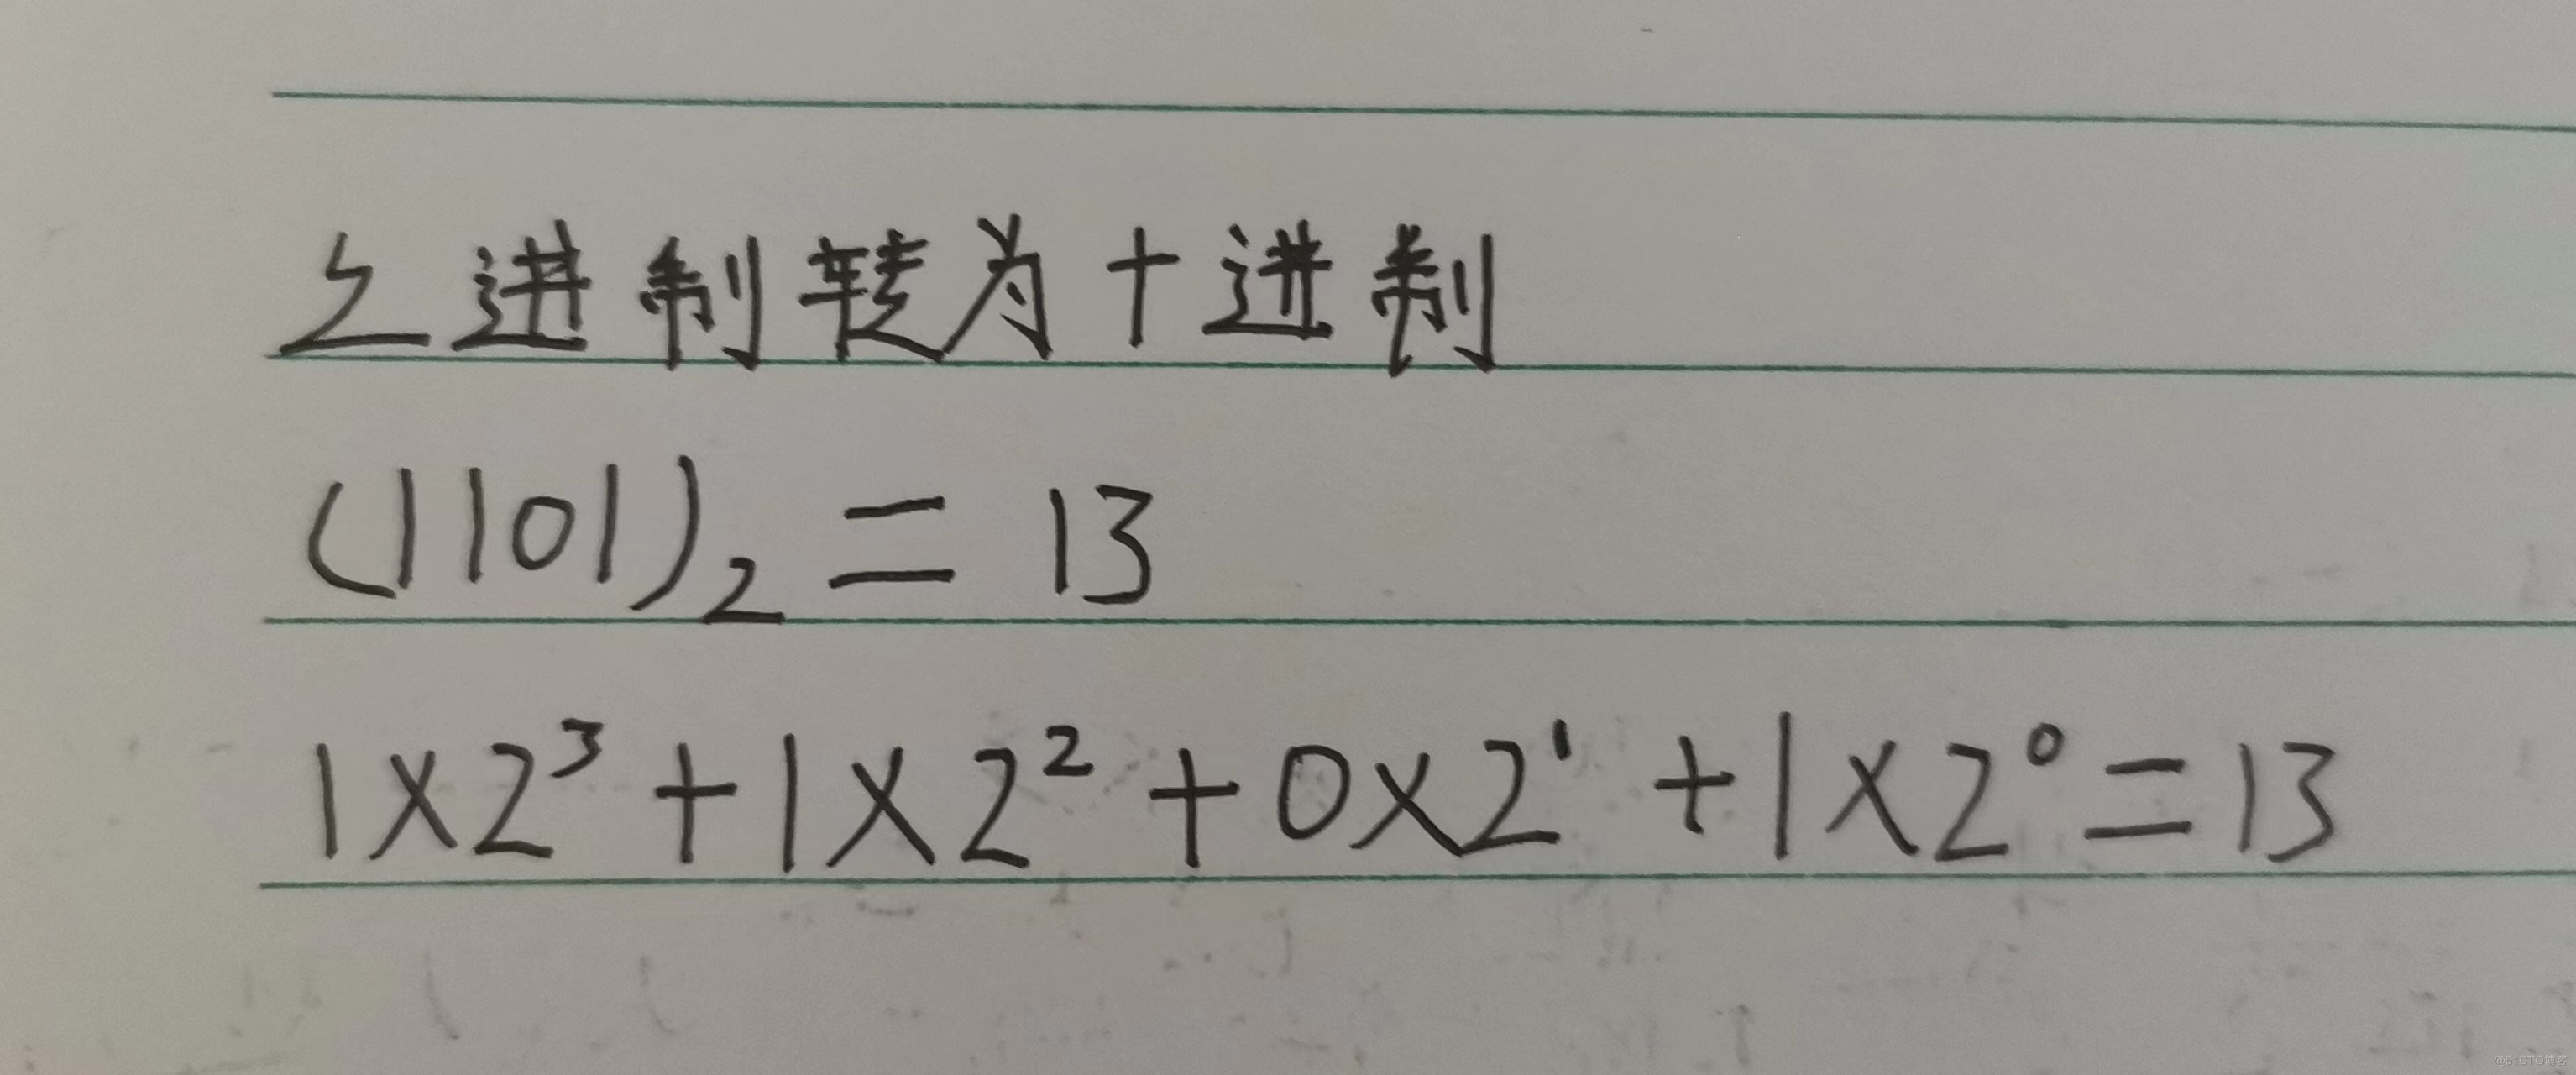 二进制转为十进制
(1101)₂ = 13
1×2³+1×2²+0×2¹+1×2⁰=13
@51CTO博客